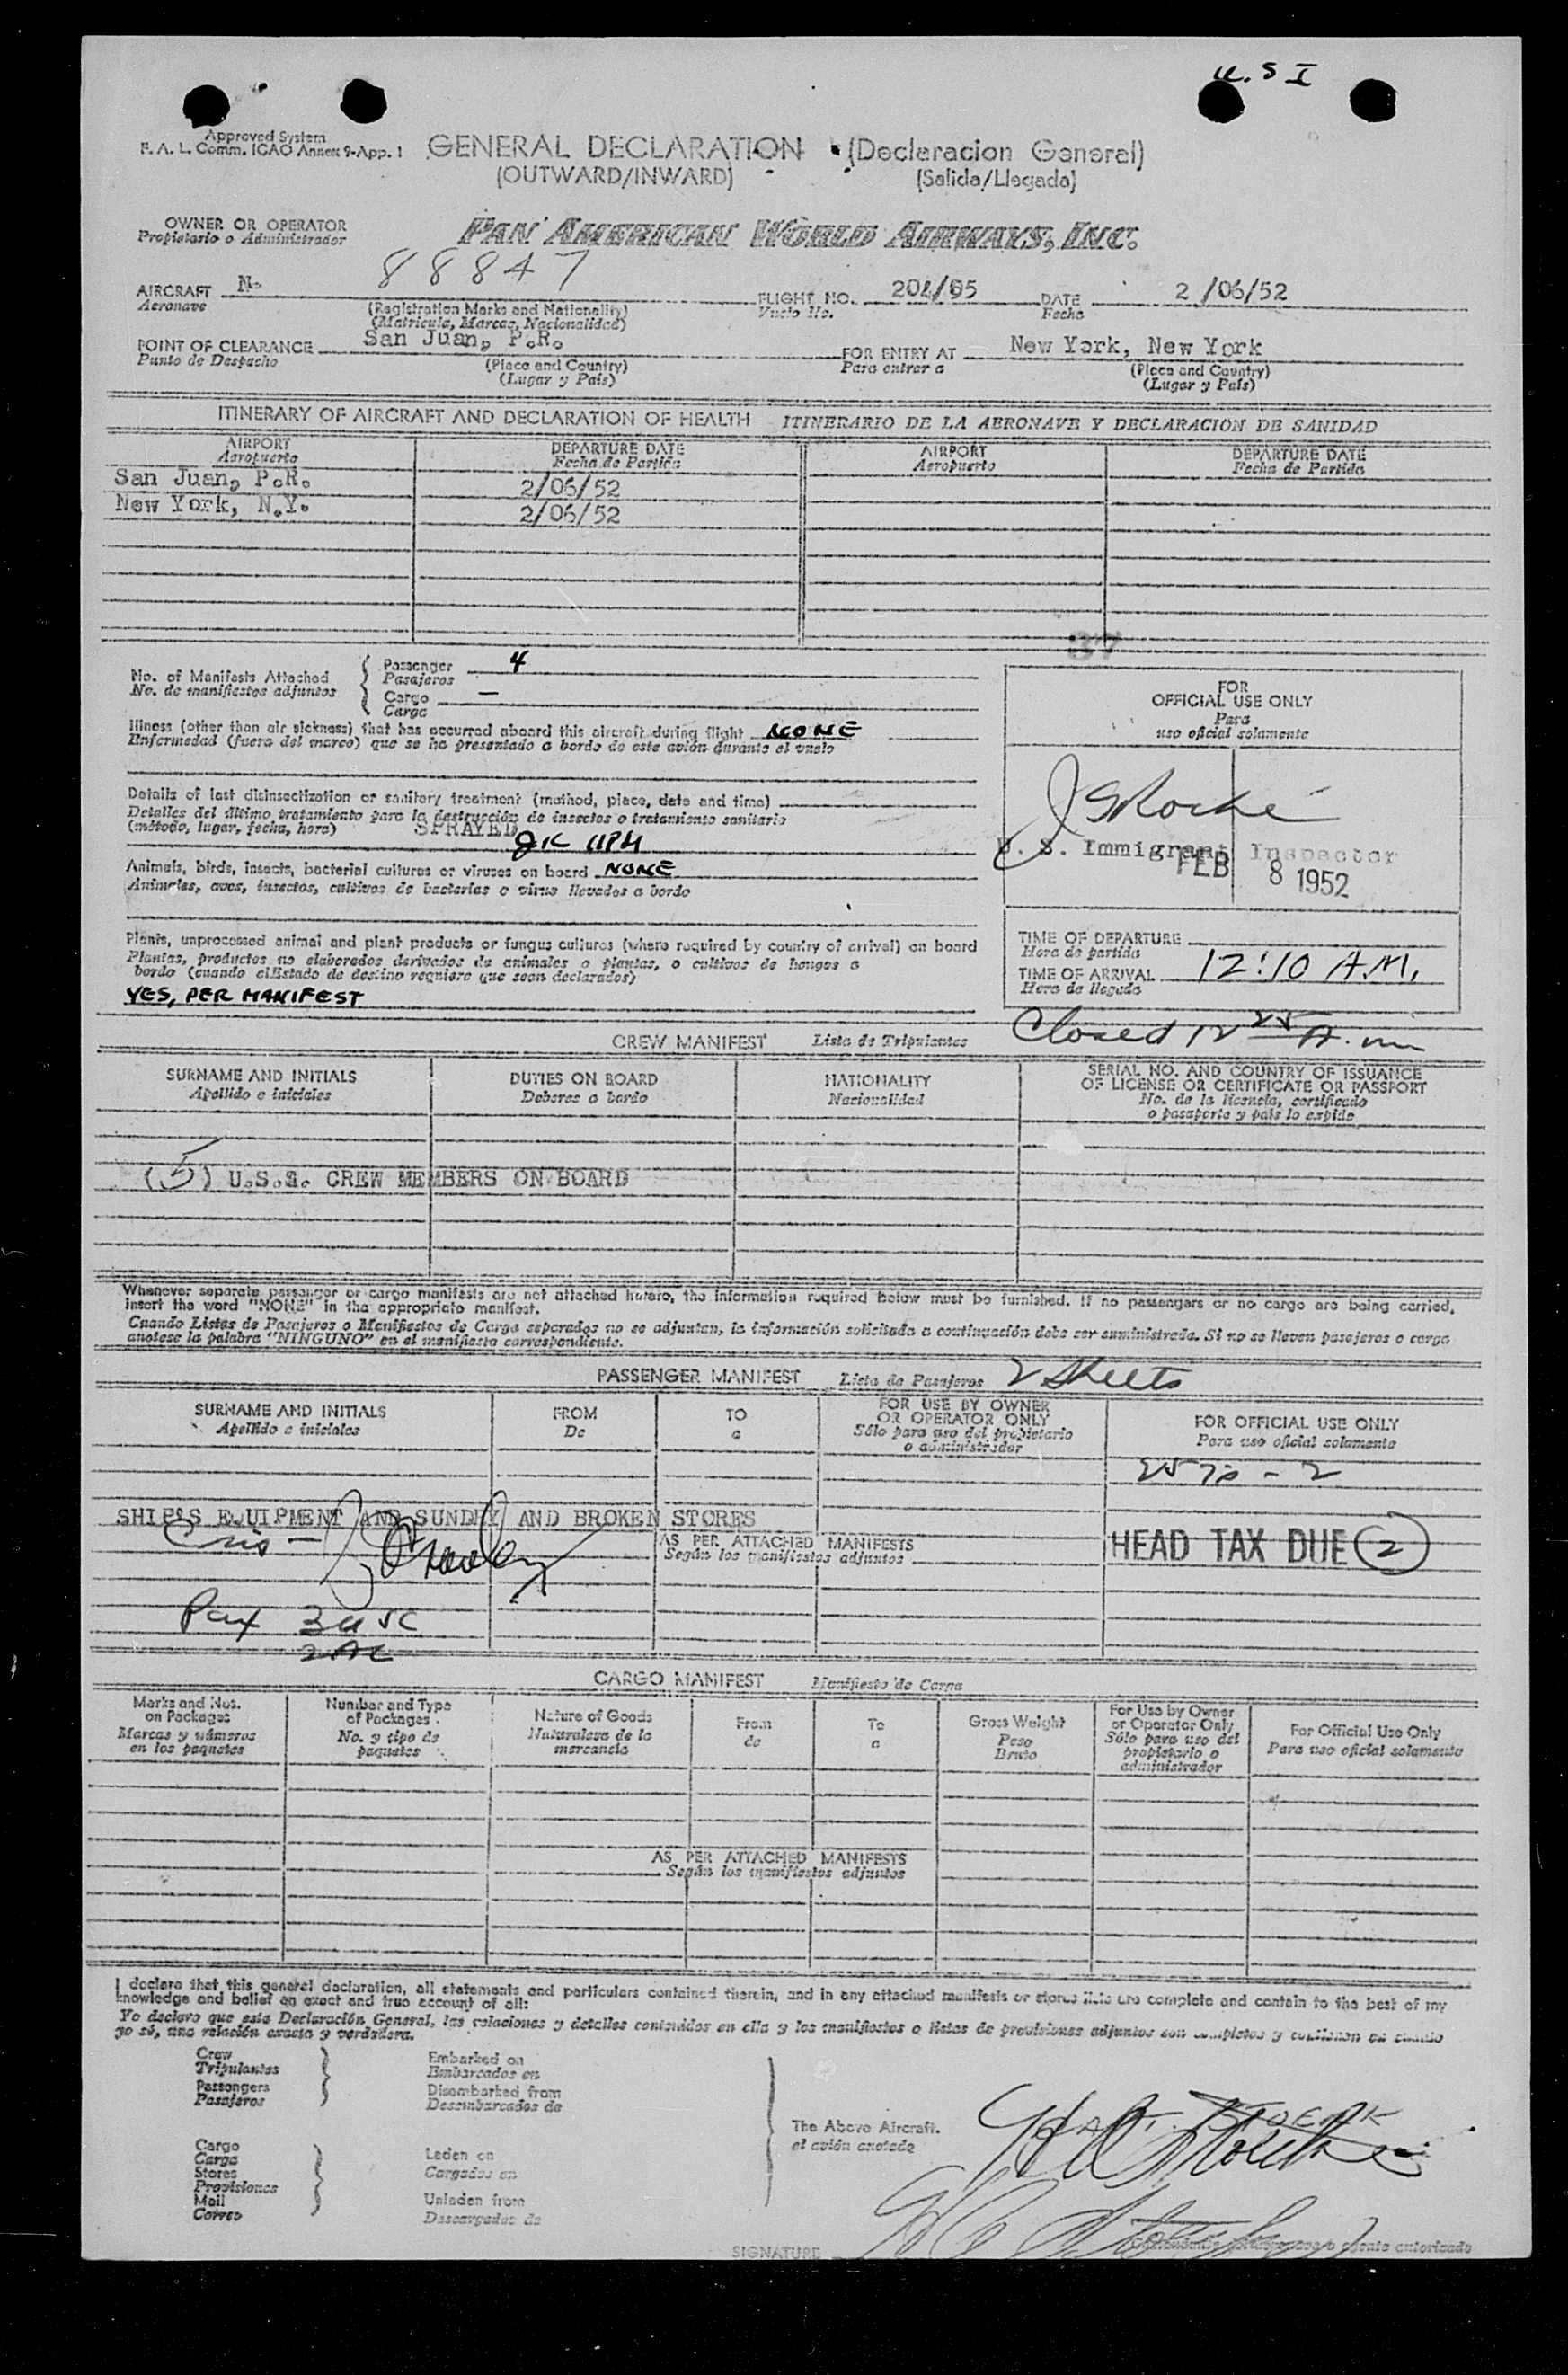 U.S I
Approved System
F. A. L. Comm. ICAO Annex 9-App. 1
GENERAL DECLARATION (Declaracion General)
(OUTWARD/INWARD) (Salida/Llegada)
OWNER OR OPERATOR
Propietario o Administrador
PAN AMERICAN WORLD AIRWAYS, INC.
AIRCRAFT N- 88847 FLIGHT NO. DATE 2/06/52
Aeronave (Registration Marks and Nationality) Vuelo No. Fecha
(Matricula, Marcas, Nacionalidad)
POINT OF CLEARANCE San Juan, P.R. FOR ENTRY AT New York, New York
Punto de Despacho (Place and Country) Para entrar a (Place and Country)
(Lugar y País) (Lugar y País)
ITINERARY OF AIRCRAFT AND DECLARATION OF HEALTH ITINERARIO DE LA AERONAVE Y DECLARACION DE SANIDAD
AIRPORT DEPARTURE DATE AIRPORT DEPARTURE DATE
Aeropuerto Fecha de Partida Aeropuerto Fecha de Partida
San Juan, P.R. 2/06/52
New York, N.Y. 2/06/52
37
No. of Manifests Attached Passenger 4
No. de manifiestos adjuntos Pasajeros
Cargo —
Carga
Illness (other than air sickness) that has occurred aboard this aircraft during flight NONE
Enfermedad (fuera del mareo) que se ha presentado a bordo de este avión durante el vuelo
Details of last disinsectization or sanitary treatment (method, place, date and time)
Detalles del último tratamiento para la destrucción de insectos o tratamiento sanitario
(método, lugar, fecha, hora) SPRAYED
11PM
Animals, birds, insects, bacterial cultures or viruses on board NONE
Animales, aves, insectos, cultivos de bacterias o virus llevados a bordo
Plants, unprocessed animal and plant products or fungus cultures (where required by country of arrival) on board
Plantas, productos no elaborados derivados de animales o plantas, o cultivos de hongos a
bordo (cuando el Estado de destino requiere que sean declarados)
YES, PER MANIFEST
FOR
OFFICIAL USE ONLY
Para
uso oficial solamente
U. S. Immigrant Inspector
FEB 8 1952
TIME OF DEPARTURE
Hora de partida
TIME OF ARRIVAL 12:10 A.M.
Hora de llegada
Closed 12 25 A.m
CREW MANIFEST Lista de Tripulantes
SURNAME AND INITIALS DUTIES ON BOARD NATIONALITY SERIAL NO. AND COUNTRY OF ISSUANCE
Apellido e iniciales Deberes a bordo Nacionalidad OF LICENSE OR CERTIFICATE OR PASSPORT
No. de la licencia, certificado
o pasaporte y país lo expide
(5) U.S.A. CREW MEMBERS ON BOARD
Whenever separate passenger or cargo manifests are not attached hereto, the information required below must be furnished. If no passengers or no cargo are being carried,
insert the word "NONE" in the appropriate manifest.
Cuando Listas de Pasajeros o Manifiestos de Carga separados no se adjuntan, la información solicitada a continuación debe ser suministrada. Si no se lleven pasajeros o carga
anotese la palabra "NINGUNO" en el manifiesto correspondiente.
PASSENGER MANIFEST Lista de Pasajeros 2 Sheets
SURNAME AND INITIALS FROM TO FOR USE BY OWNER FOR OFFICIAL USE ONLY
Apellido e iniciales De a OR OPERATOR ONLY Para uso oficial solamente
Sólo para uso del propietario
o administrador
SHIP'S EQUIPMENT AND SUNDRY AND BROKEN STORES
AS PER ATTACHED MANIFESTS
Según los manifiestos adjuntos
HEAD TAX DUE (2)
Pax 3 USC
CARGO MANIFEST Manifiesto de Carga
Marks and Nos. Number and Type Nature of Goods From To Gross Weight For Use by Owner For Official Use Only
on Packages of Packages Naturaleza de la de a Peso or Operator Only Para uso oficial solamente
Marcas y números No. y tipo de mercancía Bruto Sólo para uso del
en los paquetes paquetes propietario o
administrador
AS PER ATTACHED MANIFESTS
Según los manifiestos adjuntos
I declare that this general declaration, all statements and particulars contained therein, and in any attached manifests or stores lists are complete and contain to the best of my
knowledge and belief an exact and true account of all:
Yo declaro que esta Declaración General, las relaciones y detalles contenidos en ella y los manifiestos o listas de provisiones adjuntos son completos y contienen en cuanto
yo sé, una relación exacta y verdadera.
Crew Embarked on
Tripulantes Embarcados en
Passengers Disembarked from
Pasajeros Desembarcados de
The Above Aircraft.
el avión anotado
Cargo
Carga Laden on
Stores Cargados en
Provisiones
Mail Unladen from
Correo Descargados de
SIGNATURE